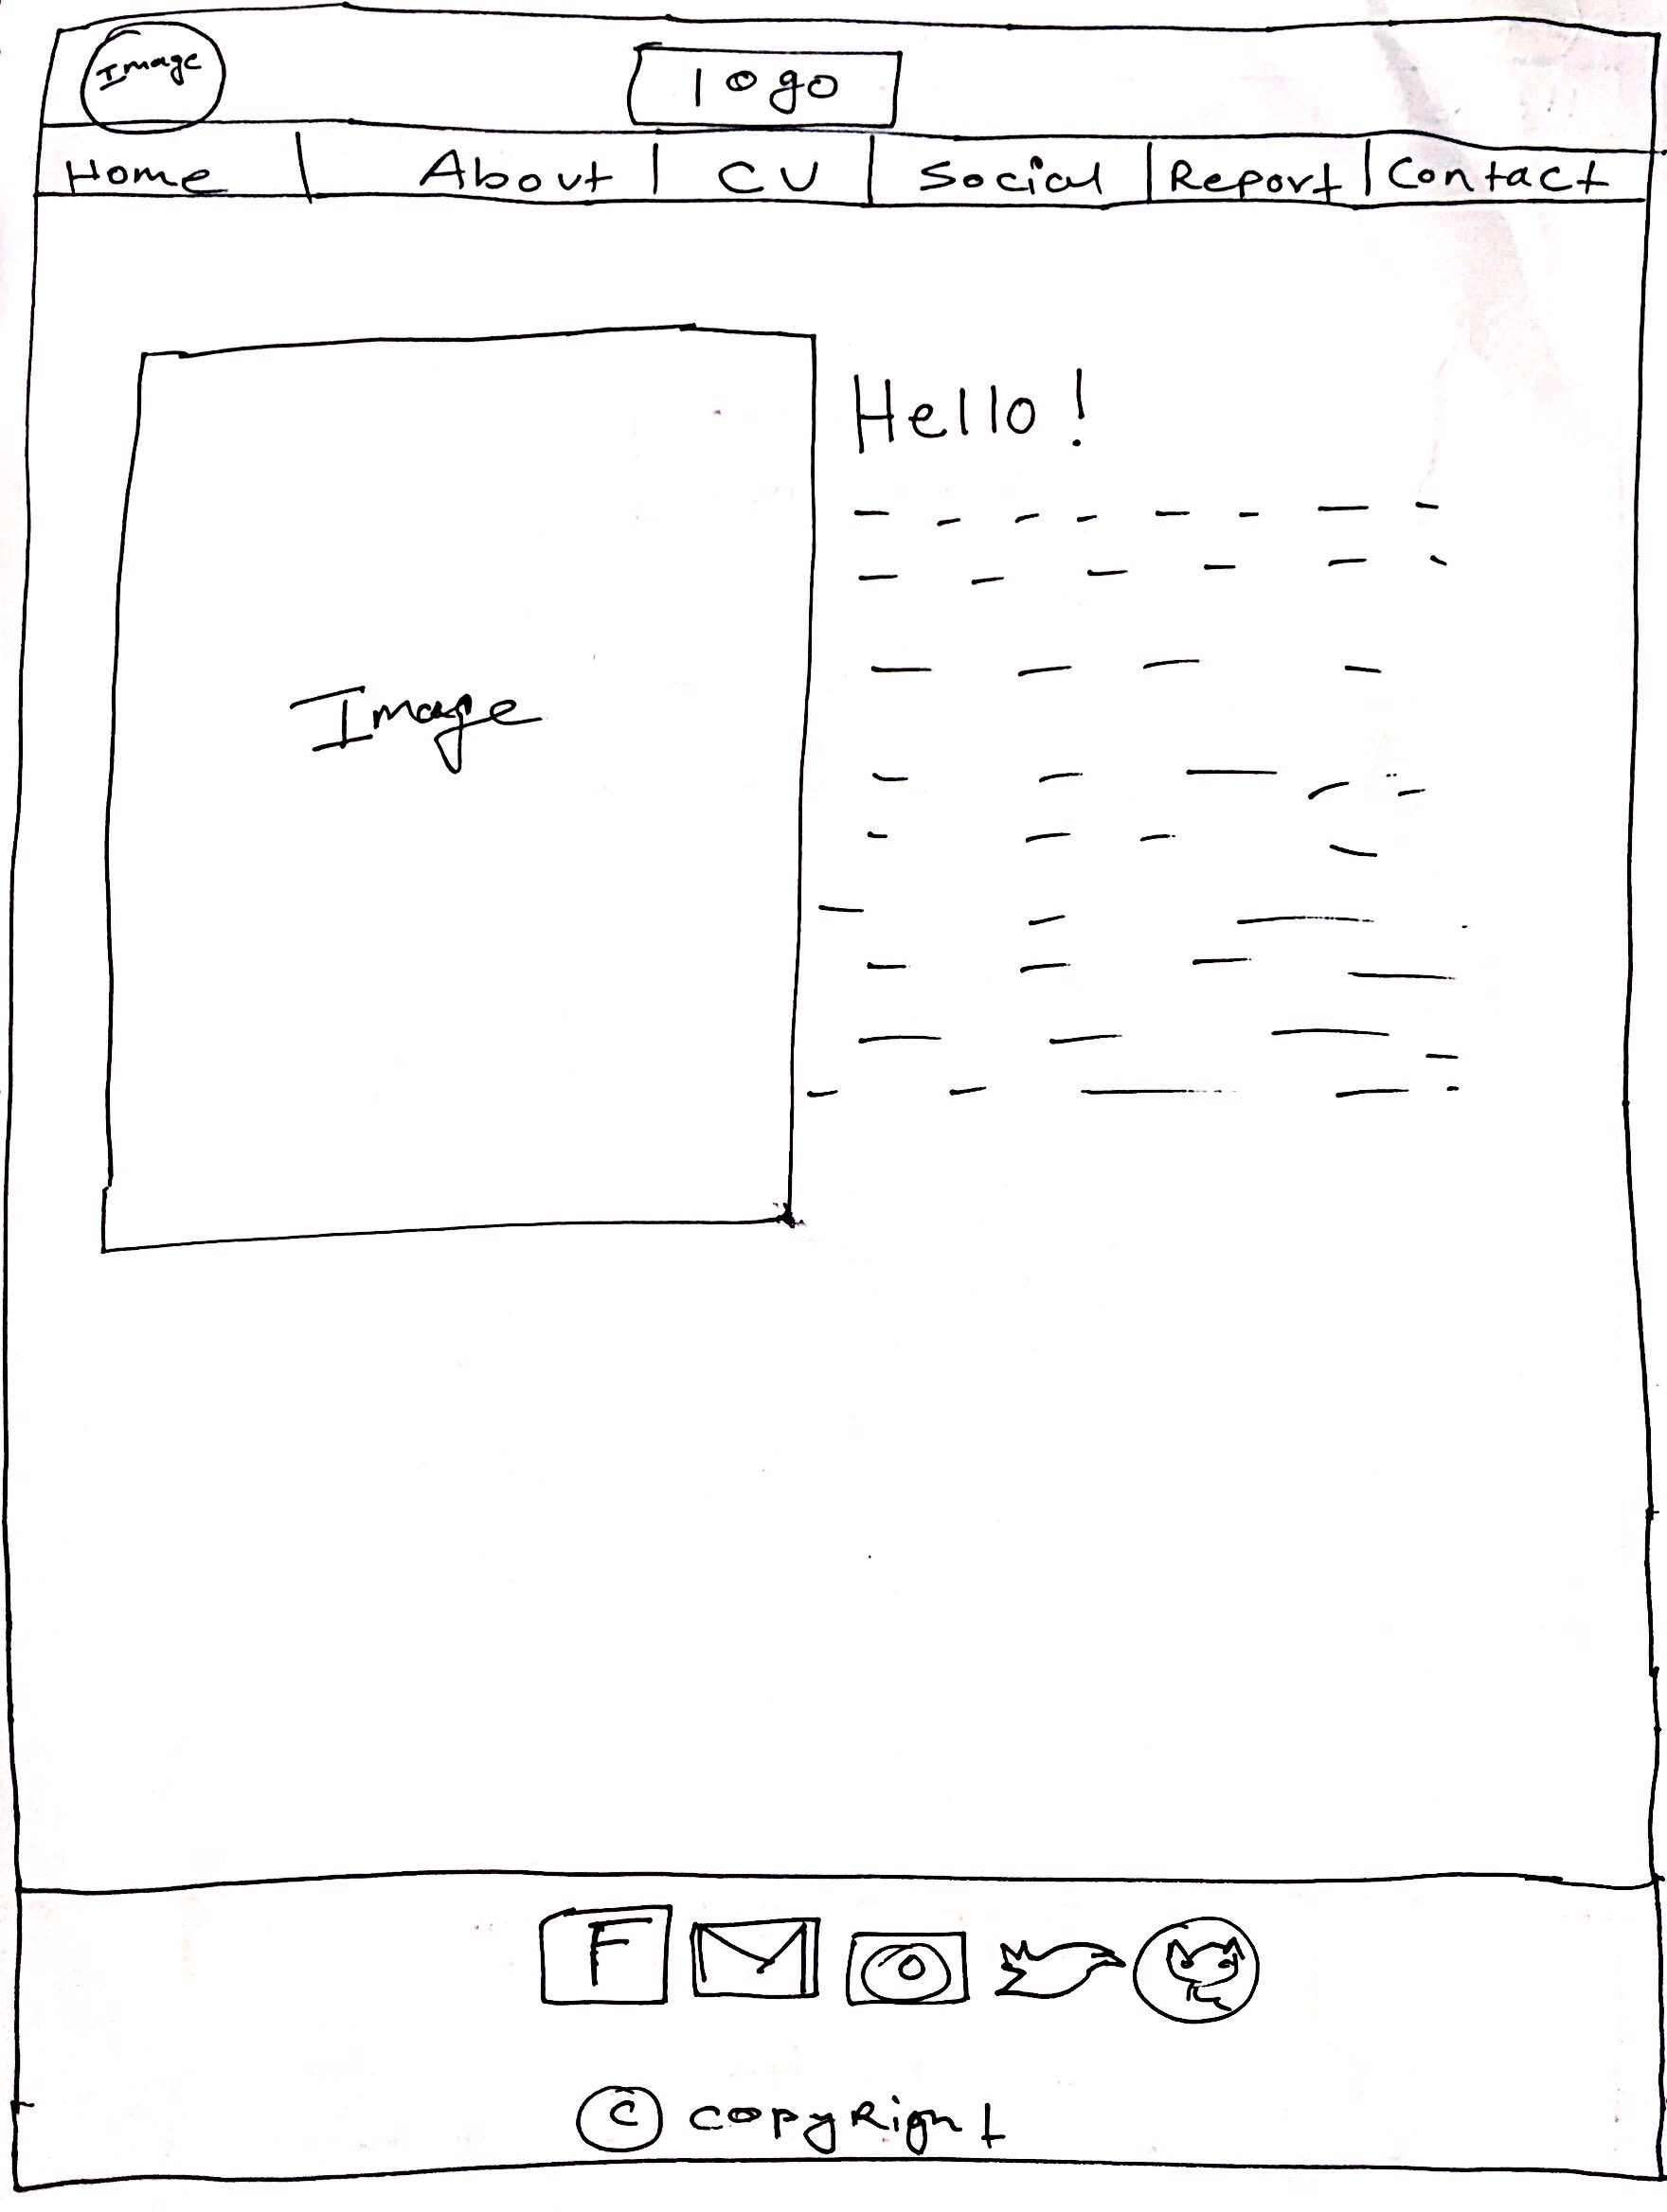 Image
logo
Home | About | CV | Social | Report | Contact
Hello!
Image
F
© copyRight